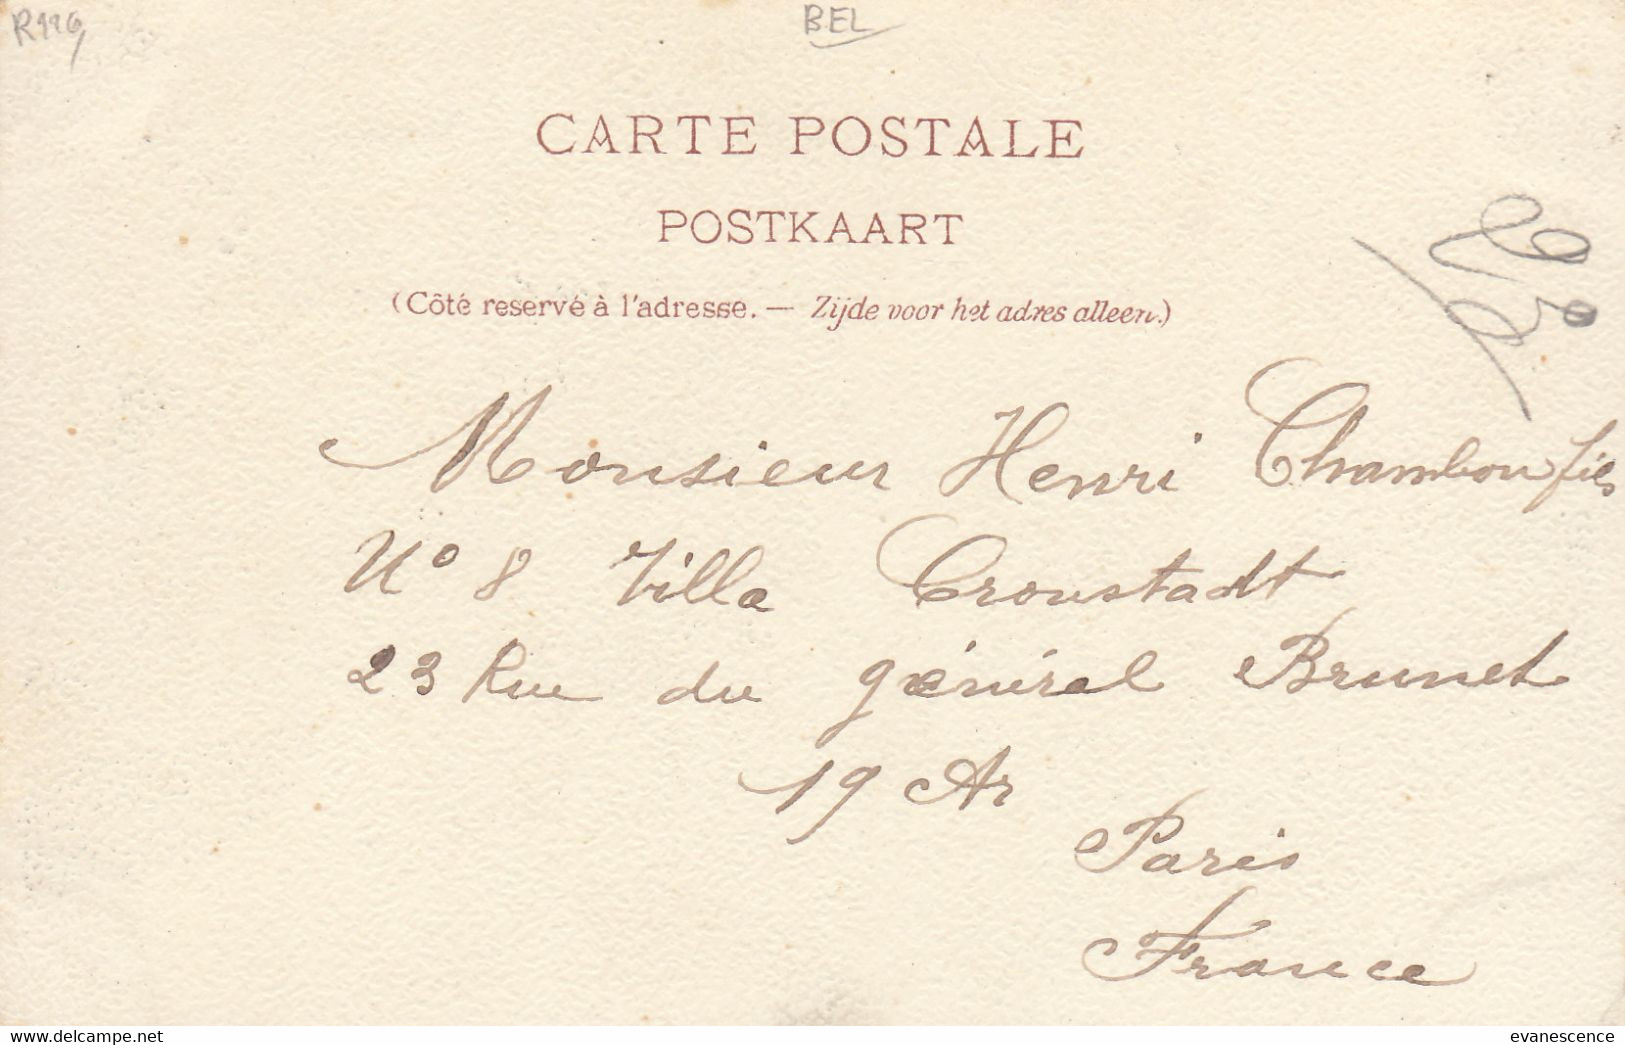 R996
BEL
CARTE POSTALE
POSTKAART
(Côté reservé à l'adresse. — Zijde voor het adres alleen.)
Monsieur Henri Chambon fils
N° 8 Villa Cronstadt
23 Rue du général Brunet
19 Ar
Paris
France
www.delcampe.net
evanescence